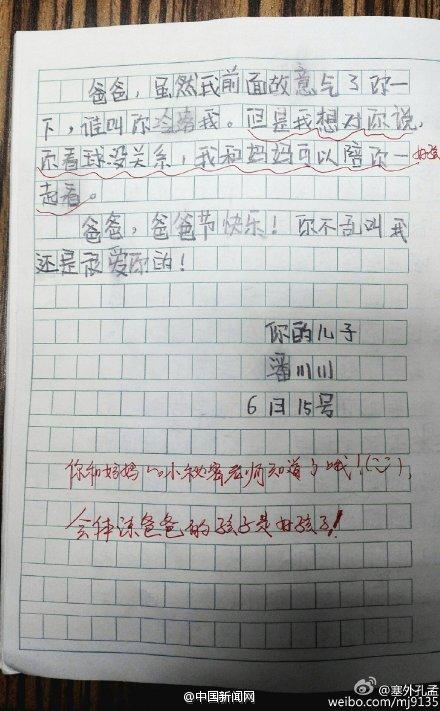 爸爸,虽然我前面故意气了你一
下,谁叫你冷落我。但是我想对你说,
你看球没关系,我和妈妈可以陪你一
起看。
爸爸,爸爸节快乐!你不乱叫我
还是很爱你的!
你的儿子
潘川川
6月15号
你和妈妈的小秘密老师知道了哦!
会体谅爸爸的孩子是好孩子!
@中国新闻网
@塞外孔孟
weibo.com/mj9135